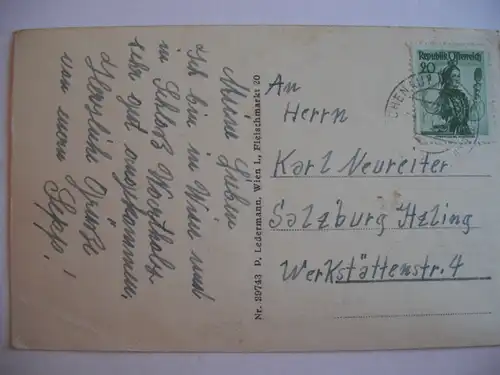 Meine Lieben
Ich bin in Wien und
im Schloß
sehr gut angekommen,
Herzliche Grüße
von eurem
Sepp!
Nr. 39743 P. Ledermann, Wien I., Fleischmarkt 20
Republik Österreich
20
An
Herrn
Karl Neureiter
Salzburg Itzling
Werkstättenstr. 4